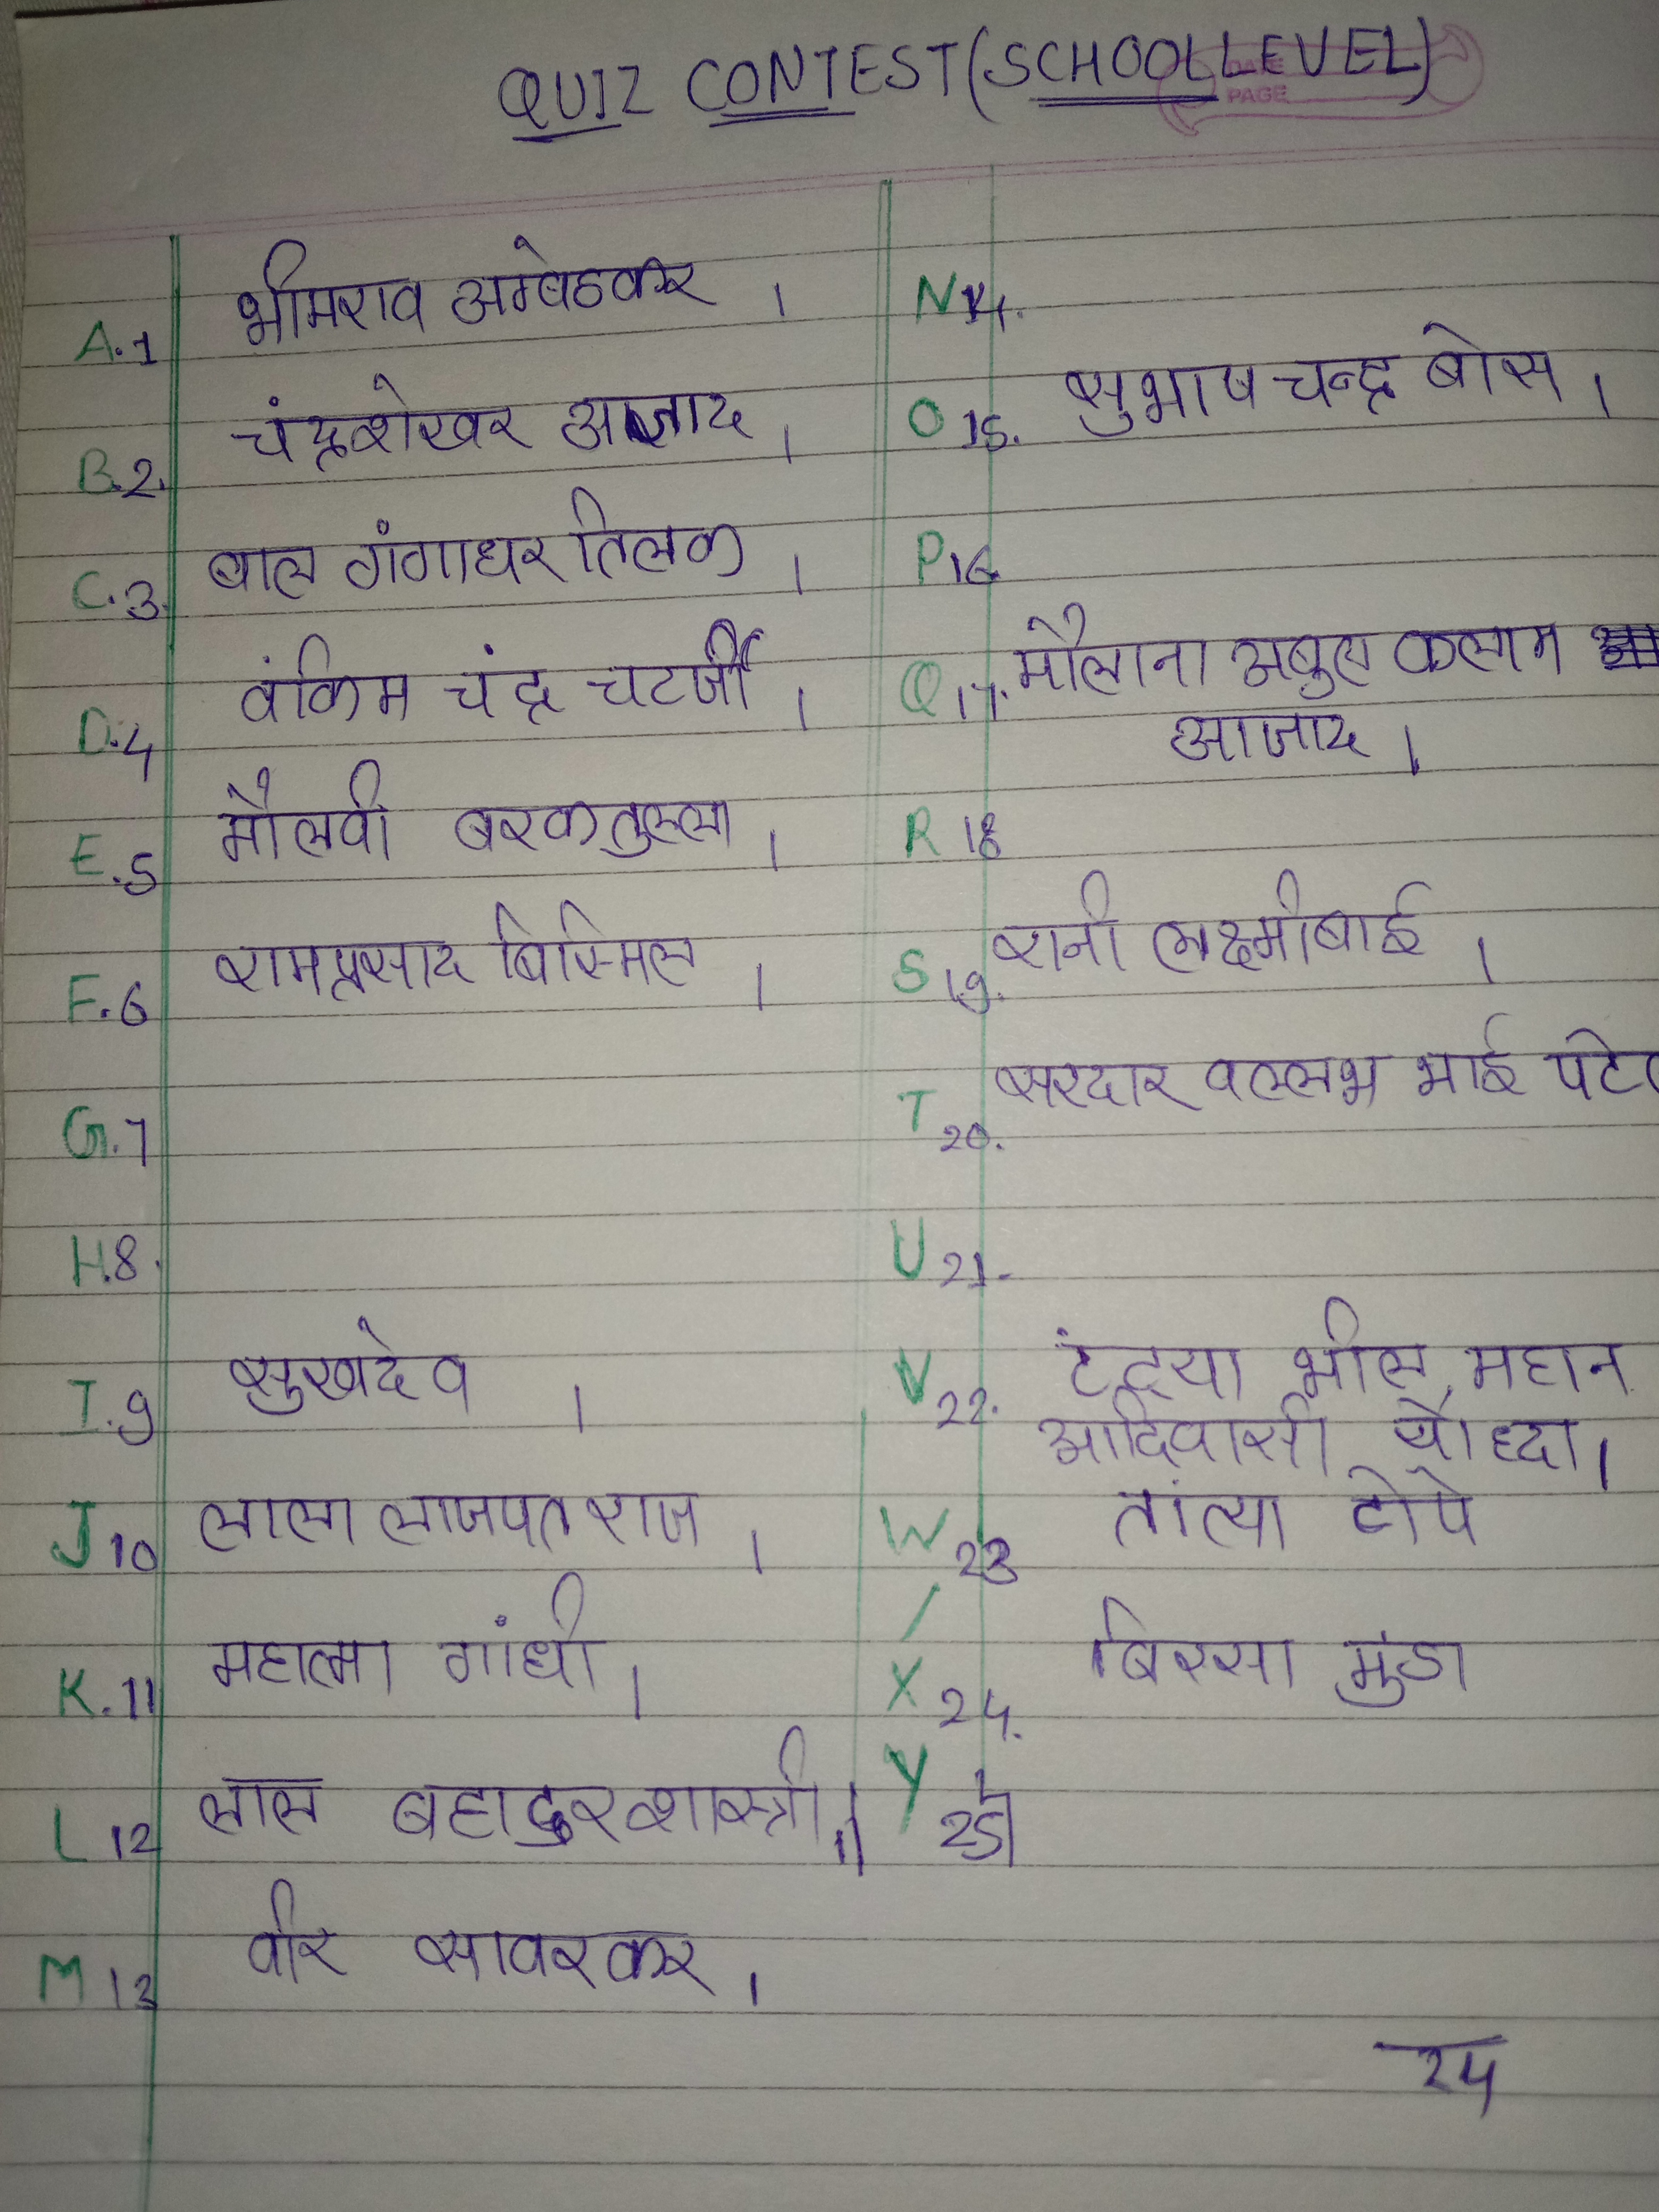 QUIZ CONTEST (SCHOOL LEVEL)
DATE
PAGE
A.1 भीमराव अम्बेडकर ।
B.2. चंद्रशेखर आजाद ।
C.3. बाल गंगाधर तिलक ।
D.4 वंकिम चंद्र चटर्जी ।
E.5 मौलवी बरकतुल्ला ।
F.6 रामप्रसाद बिस्मिल ।
G.7
H.8.
I.9 सुखदेव ।
J 10 लाला लाजपत राज ।
K.11 महात्मा गांधी ।
L 12 लाल बहादुर शास्त्री ।
M 13 वीर सावरकर ।
N 14.
O 15. सुभाष चन्द्र बोस ।
P 16
Q 17. मौलाना अबुल कलाम
आजाद ।
R 18
S 19. रानी लक्ष्मीबाई ।
T 20. सरदार वल्लभ भाई पटेल
U 21-
V 22. टंट्या भील, महान
आदिवासी यौध्दा ।
W 23 तांत्या टोपे
X 24. बिरसा मुंडा
Y 25
24